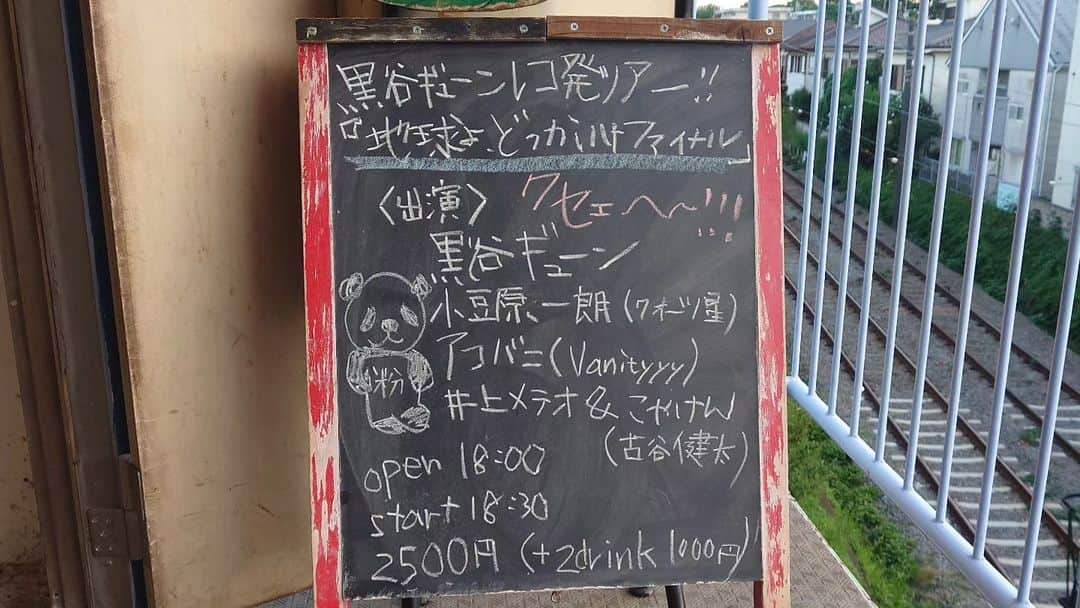 黒谷ギューンレコ発ツアー!!
『地球よ、どっかいけファイナル』
〈出演〉 クセェへ〜!!!
黒谷ギューン
小豆原一朗(クオーツ星)
アコバニ(Vanityyy)
粉
井上メテオ&こやけん
(古谷健太)
open 18:00
start 18:30
2500円 (+2drink 1000円)